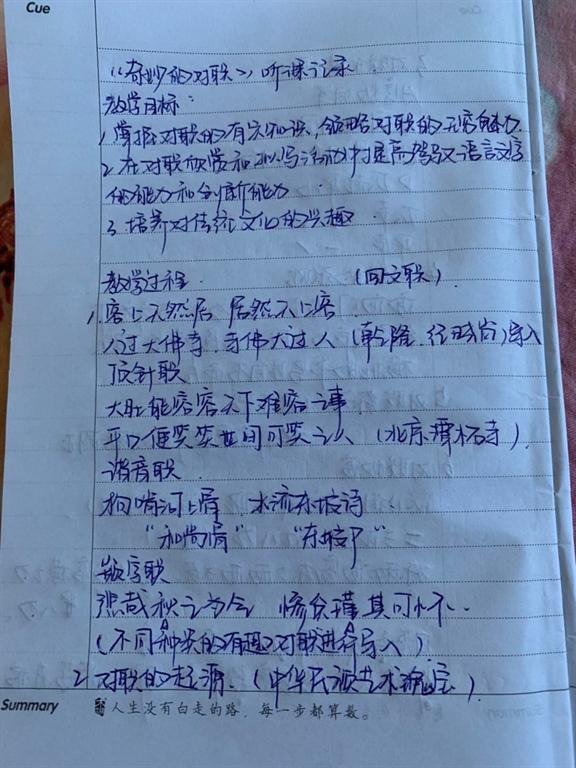 Cue
《奇妙的对联》听课记录
教学目标：
1.掌握对联的有关知识，领略对联的无穷魅力
2.在对联欣赏和拟写活动中提高驾驭语言文字
的能力和创新能力
3.培养对传统文化的兴趣
教学过程 （回文联）
1.客上天然居 居然天上客
人过大佛寺，寺佛大过人（乾隆，纪晓岚）导入
顶针联
大肚能容容天下难容之事
开口便笑笑世间可笑之人（北京潭柘寺）
谐音联
狗啃河上骨 水流东坡诗
"和尚骨" "东坡尸"
数字联
（不同种类的有趣对联进行导入）
2.对联的起源.（中华民族艺术瑰宝）.
Summary
人生没有白走的路，每一步都算数。